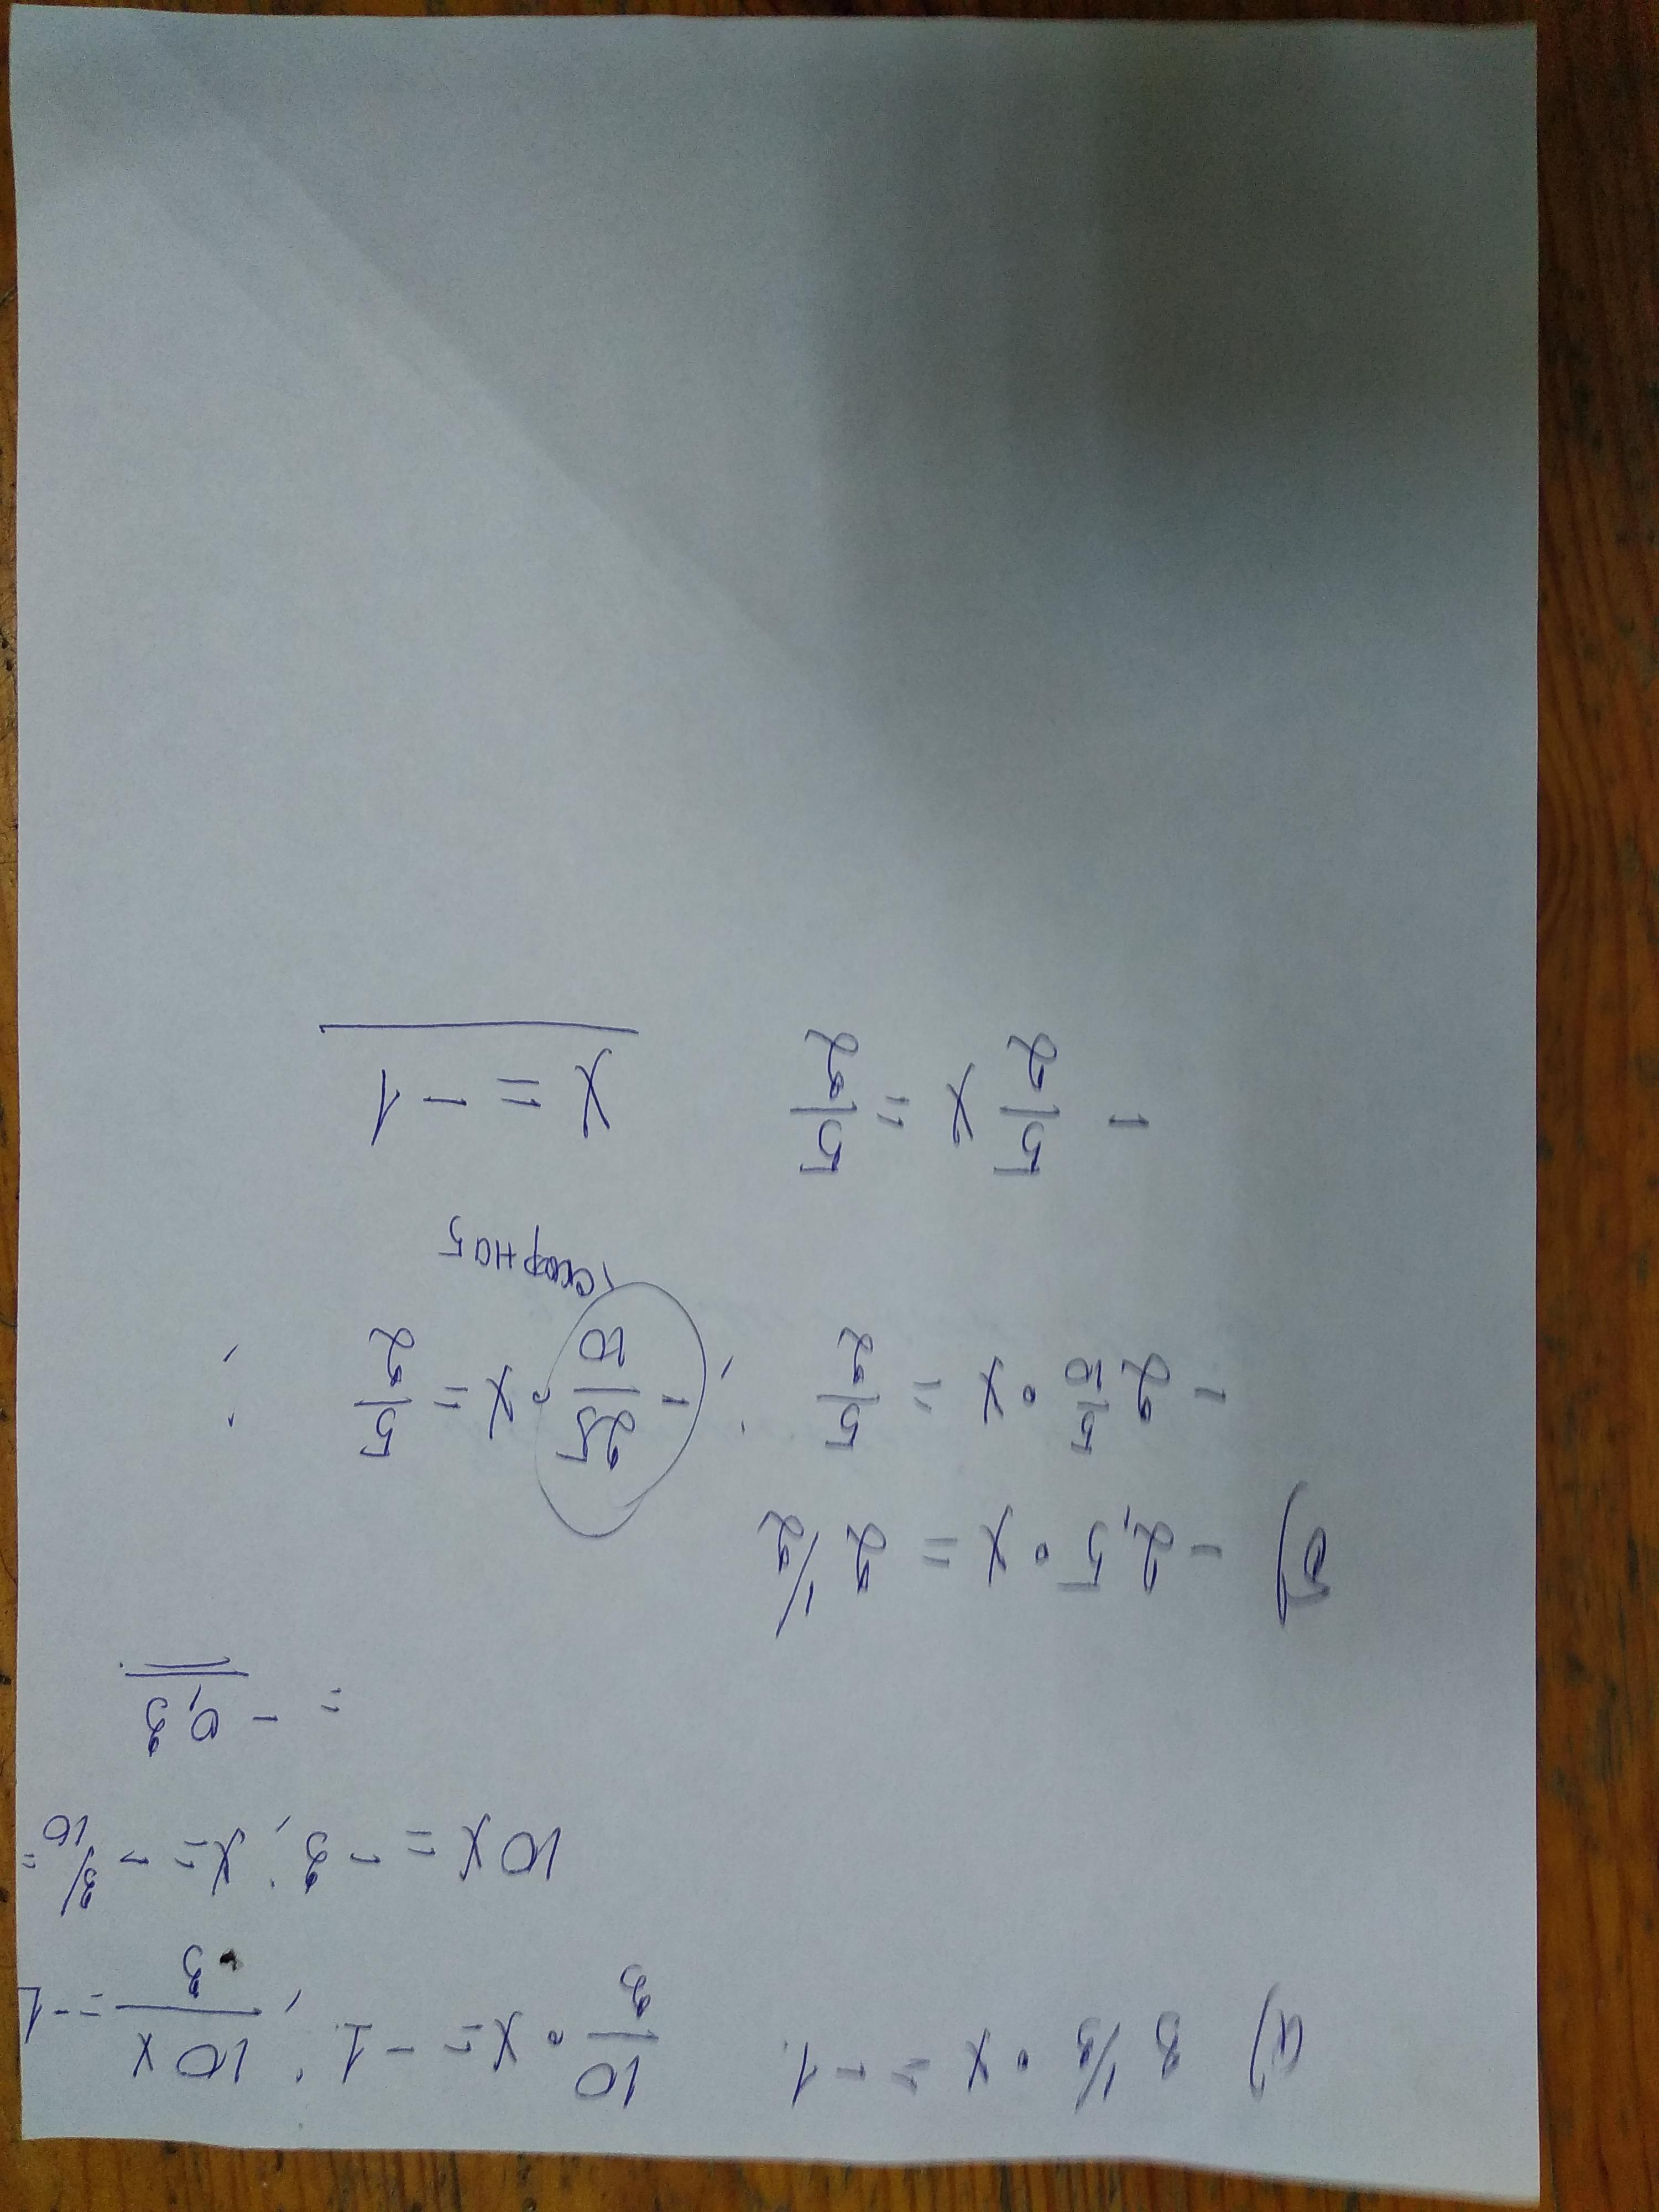 а) 3 1/3 · x = -1. 10/3 · x = -1; 10x/3 = -1
10x = -3; x = - 3/10 =
= - 0,3
б) - 2,5 · x = 2 1/2
- 2 5/10 · x = 5/2; - 25/10 · x = 5/2;
скор на 5
- 5/2 x = 5/2 x = - 1